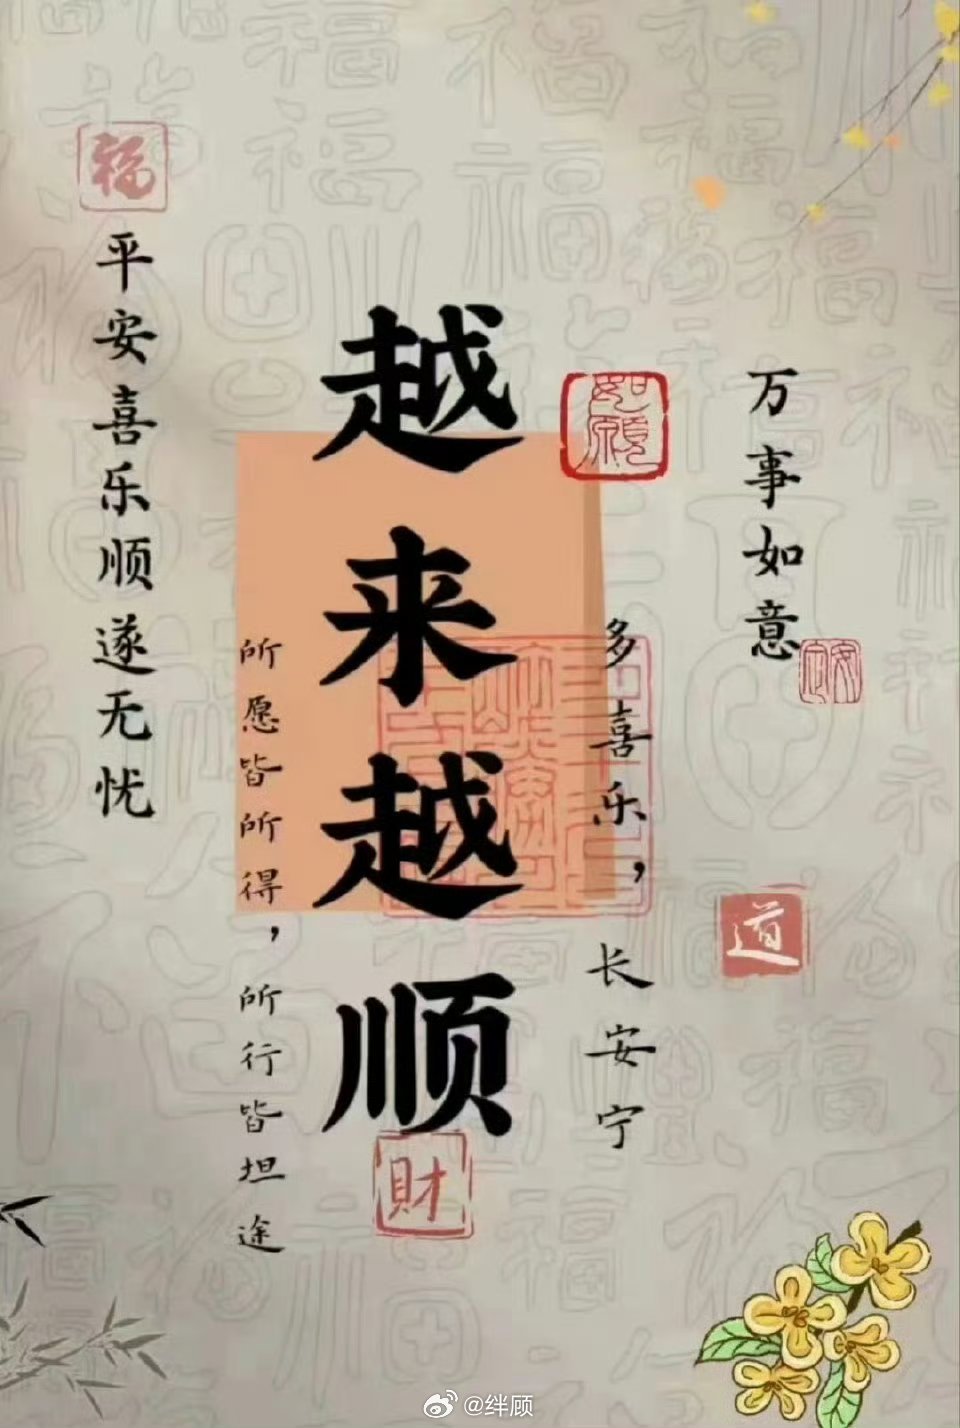 万事如意
安定
道
如愿
多喜乐，长安宁
越来越顺
财
所愿皆所得，所行皆坦途
福
平安喜乐顺遂无忧
@绊顾